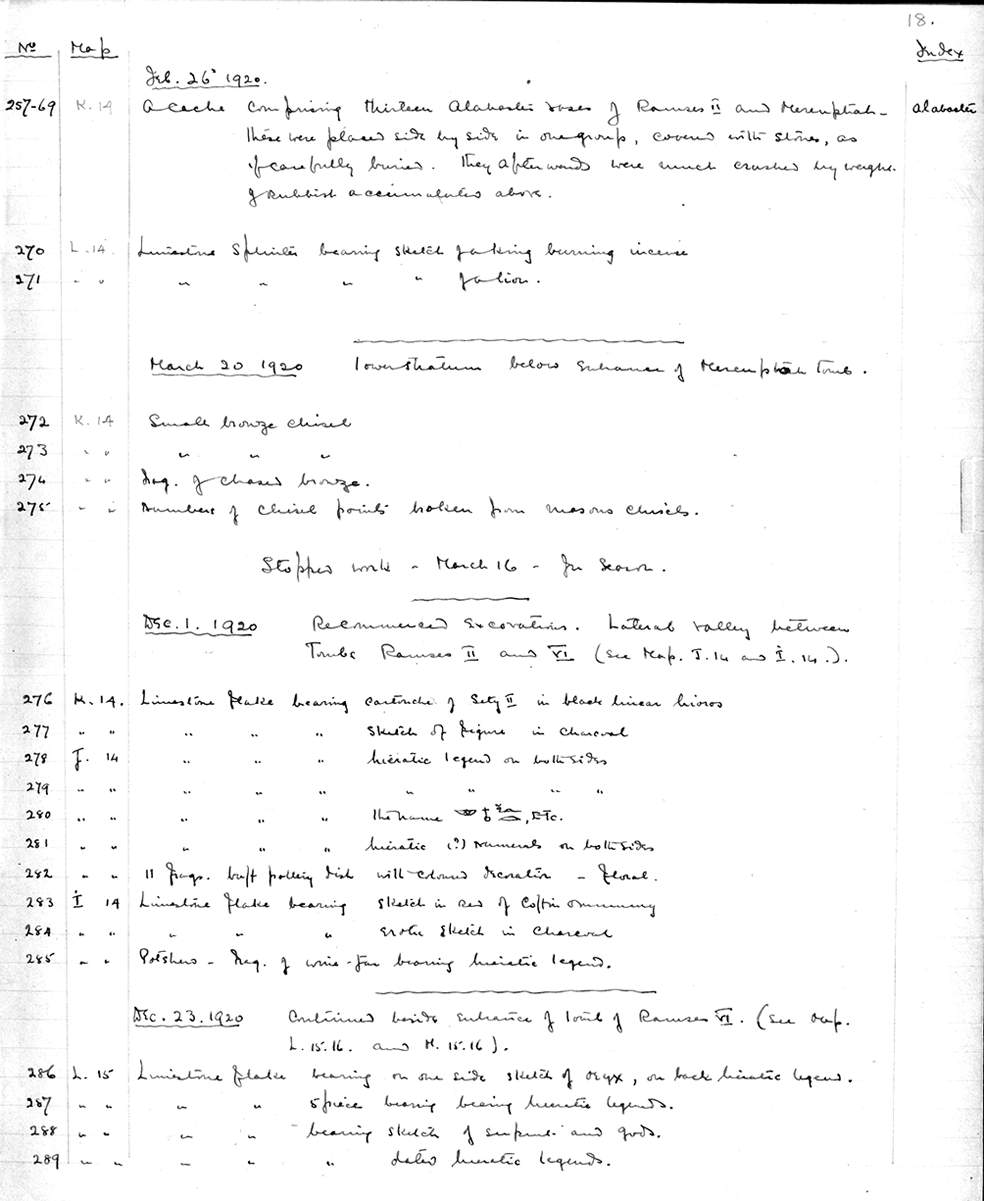 18.
No Map Index
Feb. 26 1920.
257-69 K. 14 A cache comprising thirteen Alabaster vases of Ramses II and Merenptah - Alabaster
these were placed side by side in one group, covered with stones, as
if carefully buried. They afterwards were much crushed by weight
of rubbish accumulated above.
270 L. 14 Limestone Splinter bearing sketch of a king burning incense
271 " " " " " " of a lion.
March 20 1920 lower stratum below entrance of Merenptah Tomb.
272 K. 14 Small bronze chisel
273 " " " " "
274 " " Frag. of chased bronze.
275 " " Numbers of chisel points broken from masons chisels.
Stopped work - March 16 - Season.
Dec. 1. 1920 Recommenced Excavations. Lateral valley between
Tombs Ramses II and VI (See Map. J. 14 and I. 14.).
276 K. 14. Limestone flake bearing cartouche of Sety II in black linear hieros
277 " " " " " sketch of figure in charcoal
278 J. 14 " " " hieratic legend on both sides
279 " " " " " " " " "
280 " " " " " the name , Etc.
281 " " " " " hieratic (?) numerals on both sides
282 " " 11 frags. buff pottery dish with coloured decoration - floral.
283 I 14 Limestone flake bearing sketch in red of coffin or mummy
284 " " " " " erotic sketch in charcoal
285 " " Potsherd - frag. of wine-jar bearing hieratic legend.
Dec. 23. 1920 Continued beside entrance of tomb of Ramses VI. (See Map.
L. 15. 16. and M. 15. 16).
286 L. 15 Limestone flake bearing on one side sketch of oryx, on back hieratic legend.
287 " " " " 5 piece bearing bearing hieratic legends.
288 " " " " bearing sketch of serpent and gods.
289 " " " " " dated hieratic legends.